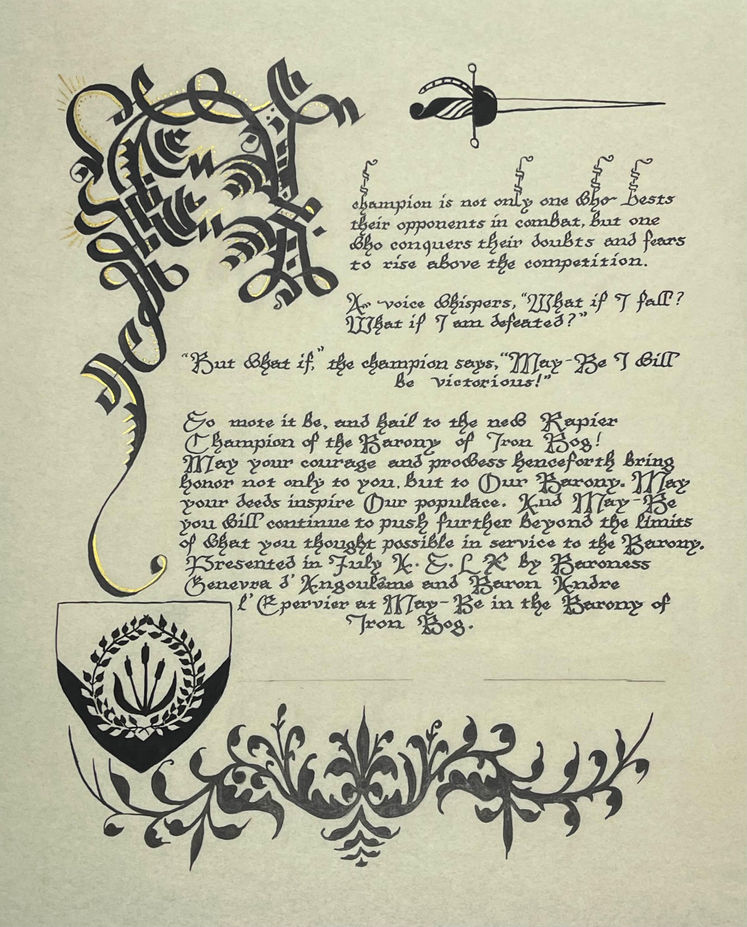 A
champion is not only one who bests
their opponents in combat, but one
who conquers their doubts and fears
to rise above the competition.
A voice whispers, "What if I fall?
What if I am defeated?"
"But what if," the champion says, "May-Be I will
be victorious!"
So mote it be, and hail to the new Rapier
Champion of the Barony of Iron Bog!
May your courage and prowess henceforth bring
honor not only to you, but to Our Barony. May
your deeds inspire Our populace. And May-Be
you will continue to push further beyond the limits
of what you thought possible in service to the Barony.
Presented in July A. S. L X by Baroness
Genevra d'Angoulême and Baron Andre
l'Epervier at May-Be in the Barony of
Iron Bog.